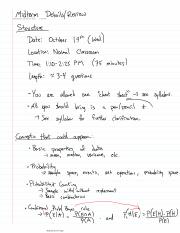 Midterm Details/Review
Structure
Date: October 19th (Wed)
Location: Normal Classroom
Time: 1:10-2:25 PM (75 minutes)
Length: ≈ 3-4 questions
• You are allowed one "cheat sheet" → see syllabus.
• All you should bring is a pen/pencil +
→ See syllabus for further clarification.
Concepts that could appear:
• Basic properties of data
→ mean, median, variance, etc.
• Probability
→ Sample space, events, set operations, probability
• Probabilistic Counting
→ Sample with/without replacement
→ combinations
• Conditional Prob / Bayes rule
→ P(E|A) = P(E∩A)/P(A) and P(A|E) = P(E|A)·P(A)/P(E)